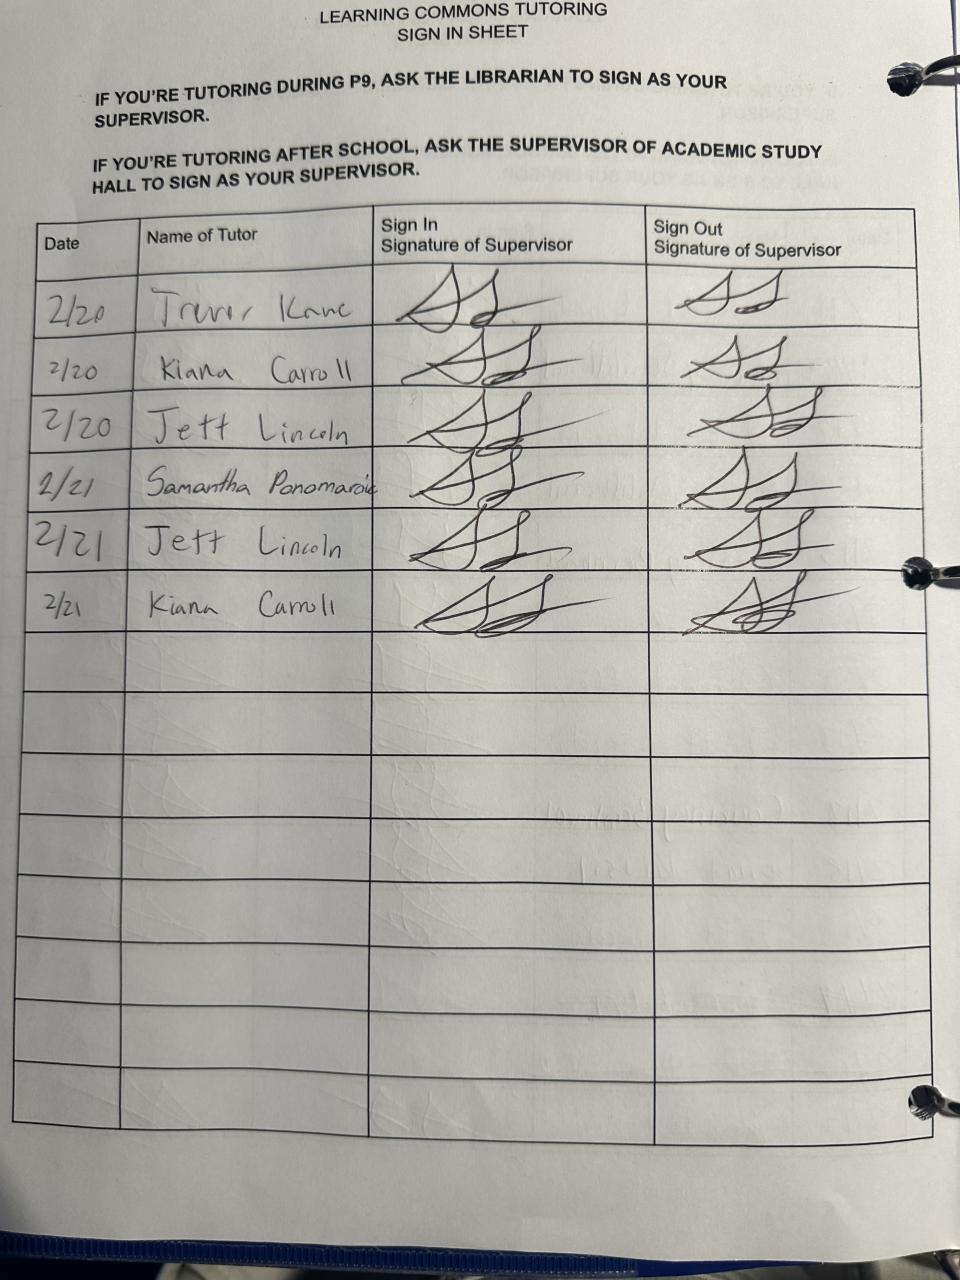 LEARNING COMMONS TUTORING
SIGN IN SHEET
IF YOU'RE TUTORING DURING P9, ASK THE LIBRARIAN TO SIGN AS YOUR
SUPERVISOR.
IF YOU'RE TUTORING AFTER SCHOOL, ASK THE SUPERVISOR OF ACADEMIC STUDY
HALL TO SIGN AS YOUR SUPERVISOR.
Date Name of Tutor Sign In Signature of Supervisor Sign Out Signature of Supervisor
2/20 Trevor Kane
2/20 Kiana Carroll
2/20 Jett Lincoln
2/21 Samantha
2/21 Jett Lincoln
2/21 Kiana Carroll